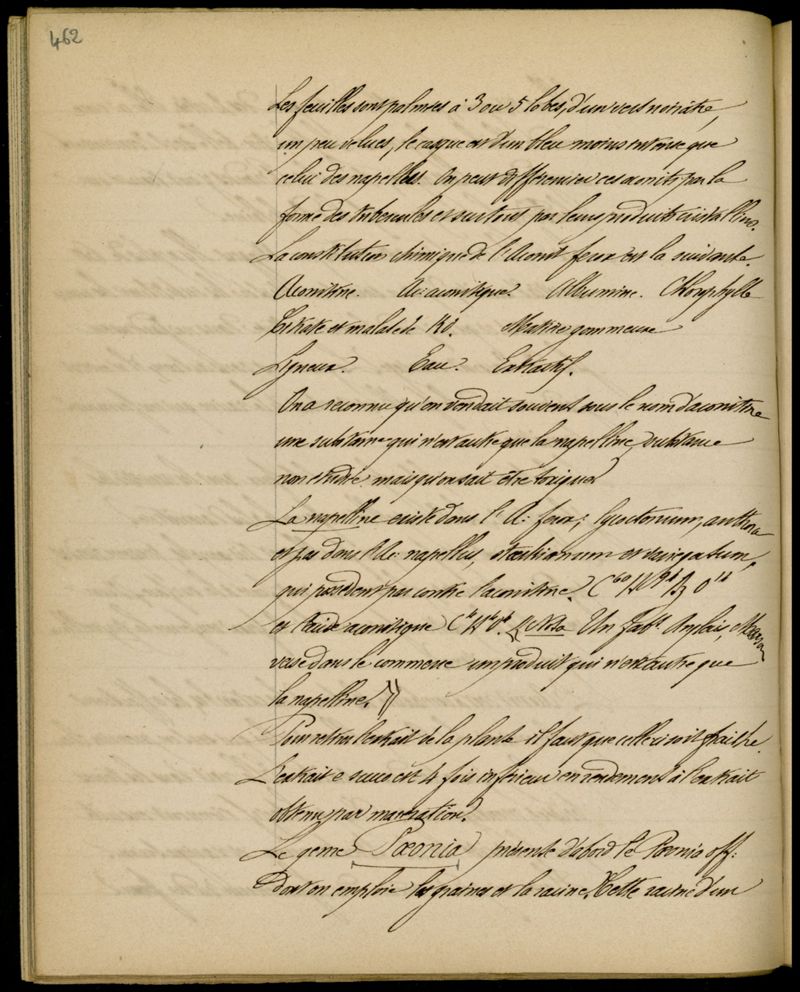 462
Les feuilles sont palmées à 3 ou 5 lobes, d'un vert noirâtre,
un peu velues, le casque est d'un bleu moins intense que
celui des napellus. On peut différencier ces aconits par la
forme des tubercules et surtout par leurs produits cristallins.
La constitution chimique de l'Aconit ferox est la suivante.
Aconitine. Ac: aconitique. Albumine. Chlorophylle
Citrate et malate de KO. Matière gommeuse
Ligneux. Eau. Extractif.
On a reconnu qu'on vendait souvent sous le nom d'aconitine
une substance qui n'est autre que la napelline, substance
non étudiée mais qu'on sait être toxique.
La napelline existe dans l'A: ferox; lycoctonum, anthora
et pas dans l'Ac: napellus, et variegatum,
qui possèdent par contre l'aconitine.
et l'acide aconitique Nota Un fabt Anglais,
verse dans le commerce un produit qui n'est autre que
la napelline.
Pour retirer l'extrait de la plante il faut que celle ci soit fraîche.
L'extrait e succo est 4 fois inférieur en rendement à l'extrait
obtenu par macération.
Le genre Pæonia présente d'abord le Pæonia off:
dont on emploie les graines et la racine. Cette racine d'un